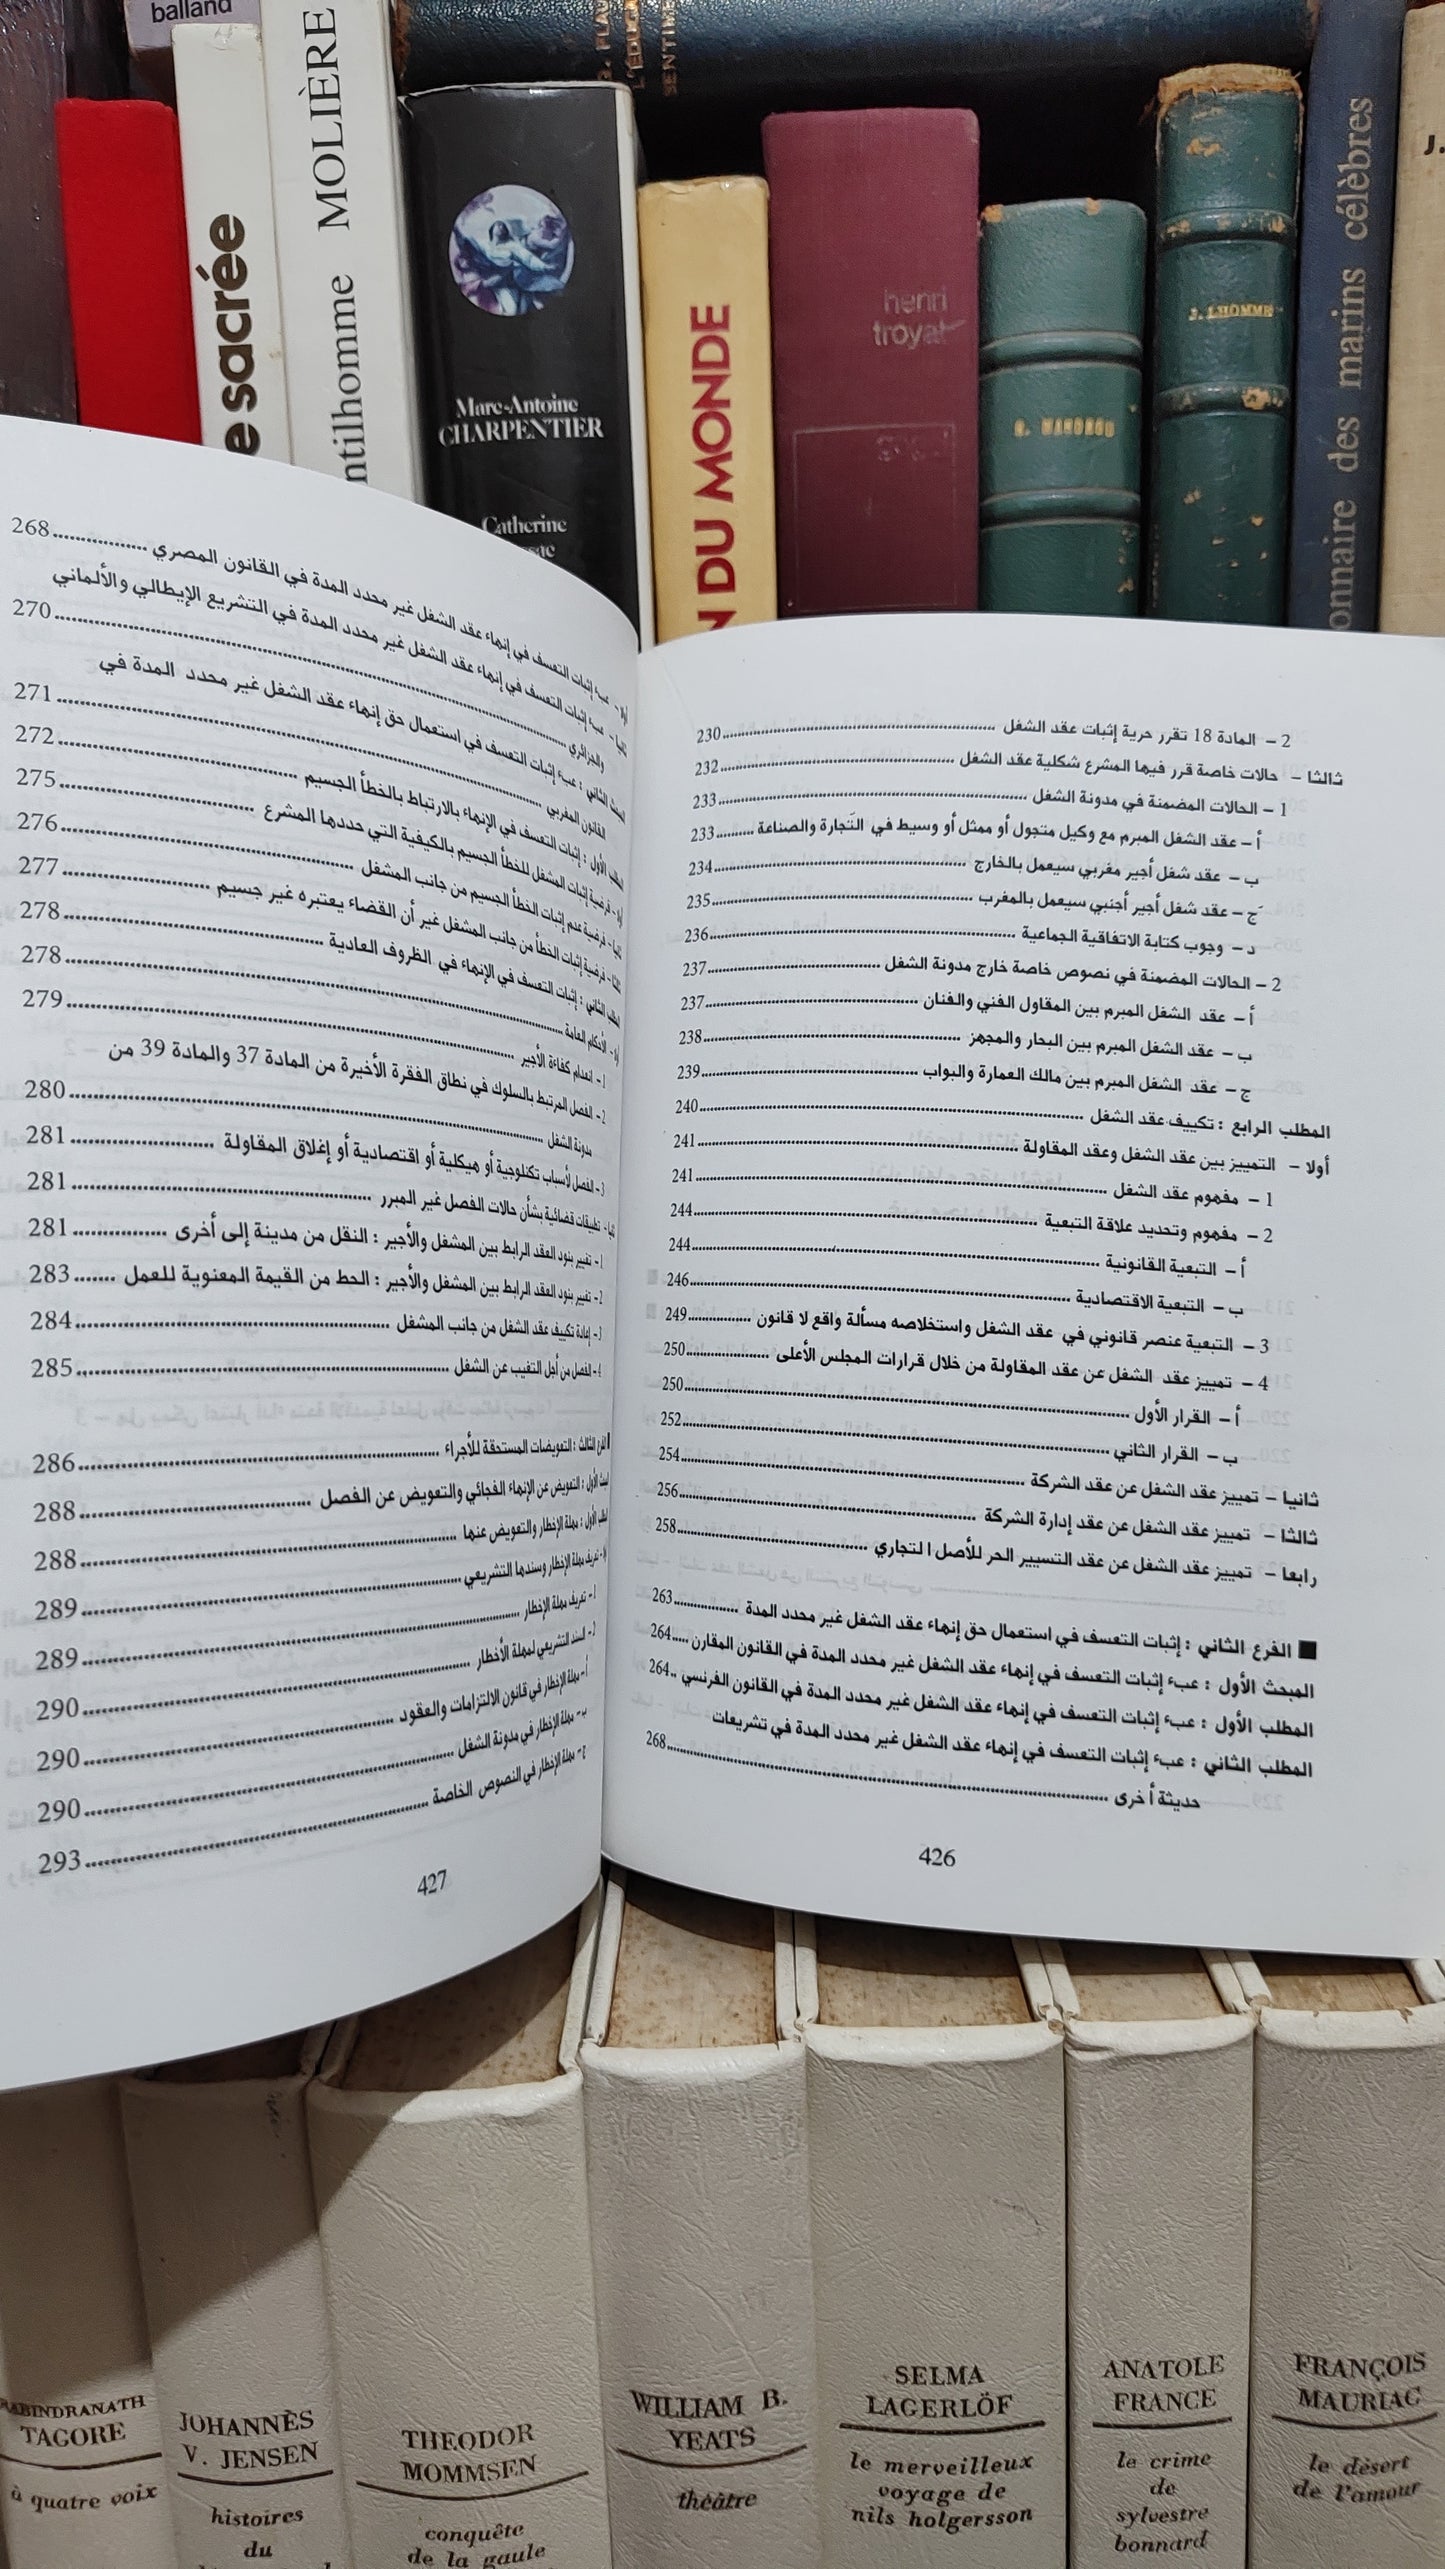 balland
sacrée
MOLIÈRE
ntilhomme
Marc-Antoine
CHARPENTIER
Catherine
DU MONDE
henri
troyat
J. LHOMME
onnaire des marins célèbres
J.
2 – المادة 18 تقرر حرية إثبات عقد الشغل 230
ثالثا – حالات خاصة قرر فيها المشرع شكلية عقد الشغل 232
1 – الحالات المضمنة في مدونة الشغل 233
أ – عقد الشغل المبرم مع وكيل متجول أو ممثل أو وسيط في التجارة والصناعة 233
ب – عقد شغل أجير مغربي سيعمل بالخارج 234
ج – عقد شغل أجير أجنبي سيعمل بالمغرب 235
د – وجوب كتابة الاتفاقية الجماعية 236
2 – الحالات المضمنة في نصوص خاصة خارج مدونة الشغل 237
أ – عقد الشغل المبرم بين المقاول الفني والفنان 237
ب – عقد الشغل المبرم بين البحار والمجهز 238
ج – عقد الشغل المبرم بين مالك العمارة والبواب 239
المطلب الرابع : تكييف عقد الشغل 240
أولا – التمييز بين عقد الشغل وعقد المقاولة 241
1 – مفهوم عقد الشغل 241
2 – مفهوم وتحديد علاقة التبعية 244
أ – التبعية القانونية 244
ب – التبعية الاقتصادية 246
3 – التبعية عنصر قانوني في عقد الشغل واستخلاصه مسألة واقع لا قانون 249
4 – تمييز عقد الشغل عن عقد المقاولة من خلال قرارات المجلس الأعلى 250
أ – القرار الأول 250
ب – القرار الثاني 252
ثانيا – تمييز عقد الشغل عن عقد الشركة 254
ثالثا – تمييز عقد الشغل عن عقد إدارة الشركة 256
رابعا – تمييز عقد الشغل عن عقد التسيير الحر للأصل التجاري 258
■ الفرع الثاني : إثبات التعسف في استعمال حق إنهاء عقد الشغل غير محدد المدة 263
المبحث الأول : عبء إثبات التعسف في إنهاء عقد الشغل غير محدد المدة في القانون المقارن 264
المطلب الأول : عبء إثبات التعسف في إنهاء عقد الشغل غير محدد المدة في القانون الفرنسي 264
المطلب الثاني : عبء إثبات التعسف في إنهاء عقد الشغل غير محدد المدة في تشريعات
حديثة أخرى 268
426
أولا – عبء إثبات التعسف في إنهاء عقد الشغل غير محدد المدة في القانون المصري 268
ثانيا – عبء إثبات التعسف في إنهاء عقد الشغل غير محدد المدة في التشريع الإيطالي والألماني
والجزائري 270
المبحث الثاني : عبء إثبات التعسف في استعمال حق إنهاء عقد الشغل غير محدد المدة في
القانون المغربي 271
المطلب الأول : إثبات التعسف في الإنهاء بالارتباط بالخطأ الجسيم 272
أولا – فرضية إثبات المشغل للخطأ الجسيم بالكيفية التي حددها المشرع 275
ثانيا – فرضية عدم إثبات الخطأ الجسيم من جانب المشغل 276
ثالثا – فرضية إثبات الخطأ من جانب المشغل غير أن القضاء يعتبره غير جسيم 277
المطلب الثاني : إثبات التعسف في الإنهاء في الظروف العادية 278
أولا – الأحكام العامة 278
1 – انعدام كفاءة الأجير 279
2 – الفصل المرتبط بالسلوك في نطاق الفقرة الأخيرة من المادة 37 والمادة 39 من
مدونة الشغل 280
3 – الفصل لأسباب تكنلوجية أو هيكلية أو اقتصادية أو إغلاق المقاولة 281
ثانيا – تطبيقات قضائية بشأن حالات الفصل غير المبرر 281
1 – تغيير بنود العقد الرابط بين المشغل والأجير : النقل من مدينة إلى أخرى 281
2 – تغيير بنود العقد الرابط بين المشغل والأجير : الحط من القيمة المعنوية للعمل 283
3 – إعادة تكييف عقد الشغل من جانب المشغل 284
4 – الفصل من أجل التغيب عن الشغل 285
الفرع الثالث : التعويضات المستحقة للأجراء 286
المبحث الأول : التعويض عن الإنهاء الفجائي والتعويض عن الفصل 288
المطلب الأول : مهلة الإخطار والتعويض عنها 288
أولا – تعريف مهلة الإخطار وسندها التشريعي 289
1 – تعريف مهلة الإخطار 289
2 – السند التشريعي لمهلة الأخطار 290
أ – مهلة الإخطار في قانون الالتزامات والعقود 290
ب – مهلة الإخطار في مدونة الشغل 290
ج – مهلة الإخطار في النصوص الخاصة 293
427
RABINDRANATH
TAGORE
à quatre voix
JOHANNÈS
V. JENSEN
histoires
du
THEODOR
MOMMSEN
conquête
de la gaule
WILLIAM B.
YEATS
théâtre
SELMA
LAGERLÖF
le merveilleux
voyage de
nils holgersson
ANATOLE
FRANCE
le crime
de
sylvestre
bonnard
FRANÇOIS
MAURIAC
le désert
de l'amour